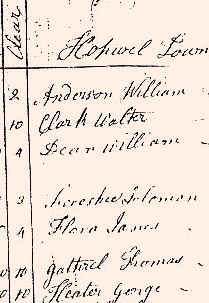 Clear
Hopwel Town
2 Anderson William
10 Clark Walter
4 Dean William
3 Solomon
4 Flora James
10 Gathrel Thomas
10 Heater Gorge